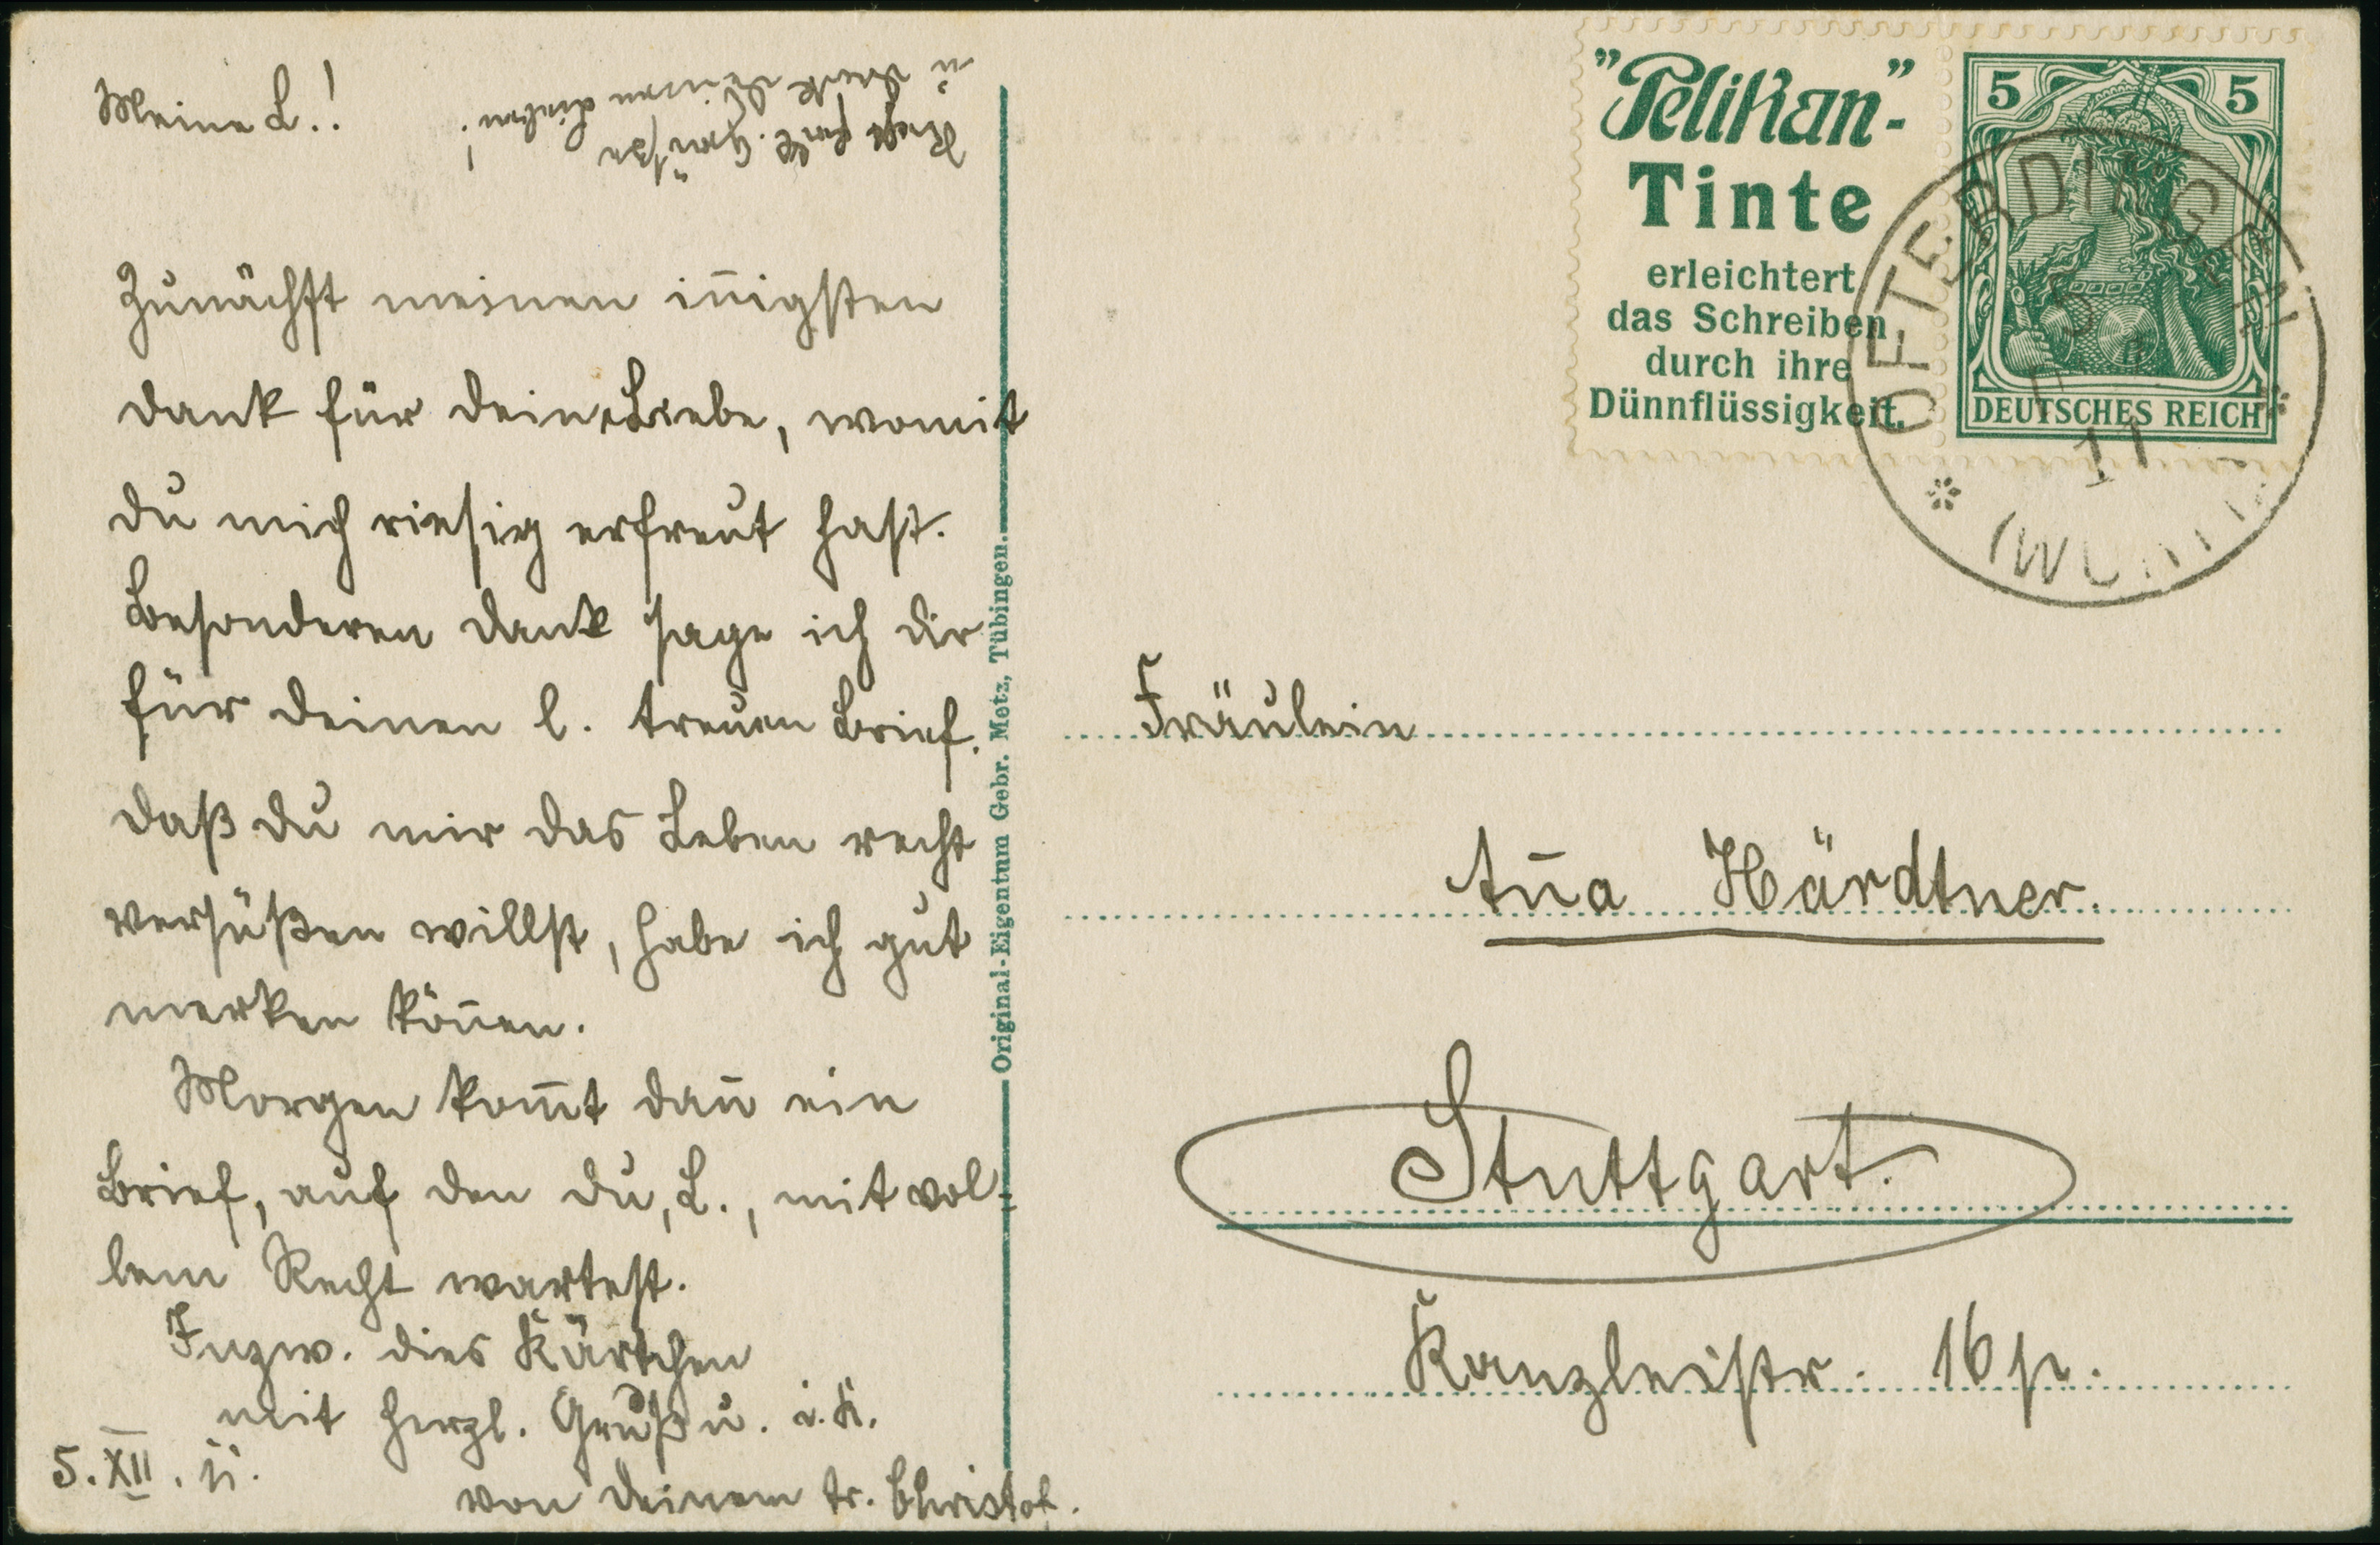 Meine L.!
Zunächst meinen in̄igsten
Dank für Deine Liebe, womit
Du mich riesig erfreut hast.
Besonderen Dank sage ich Dir
für Deinen l. treuen Brief.
Daß Du mir das Leben recht
versüßen willst, habe ich gut
merken kön̄en.
Morgen kom̄t dan̄ ein
Brief, auf den Du, L., mit vol-
lem Recht wartest.
Inzw. dies Kärtchen
mit herzl. Gruß u. i. K.
5. XII. 11.
von Deinem tr. Christof.
herzl. Grüße
u. Dank Deinen Lieben!
Original-Eigentum Gebr. Metz, Tübingen.
"Pelikan"-
Tinte
erleichtert
das Schreiben
durch ihre
Dünnflüssigkeit.
5 5
DEUTSCHES REICH
OFTERDINGEN
5
11
Fräulein
An̄a Härdtner.
Stuttgart.
Kanzleistr. 16 p.